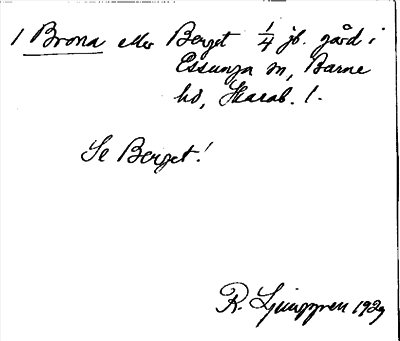 1 Brona eller Berget 1/4 jb. gård i
Essunga sn, Barne
hd, Skarab. l.
Se Berget!
R. Ljunggren 1929